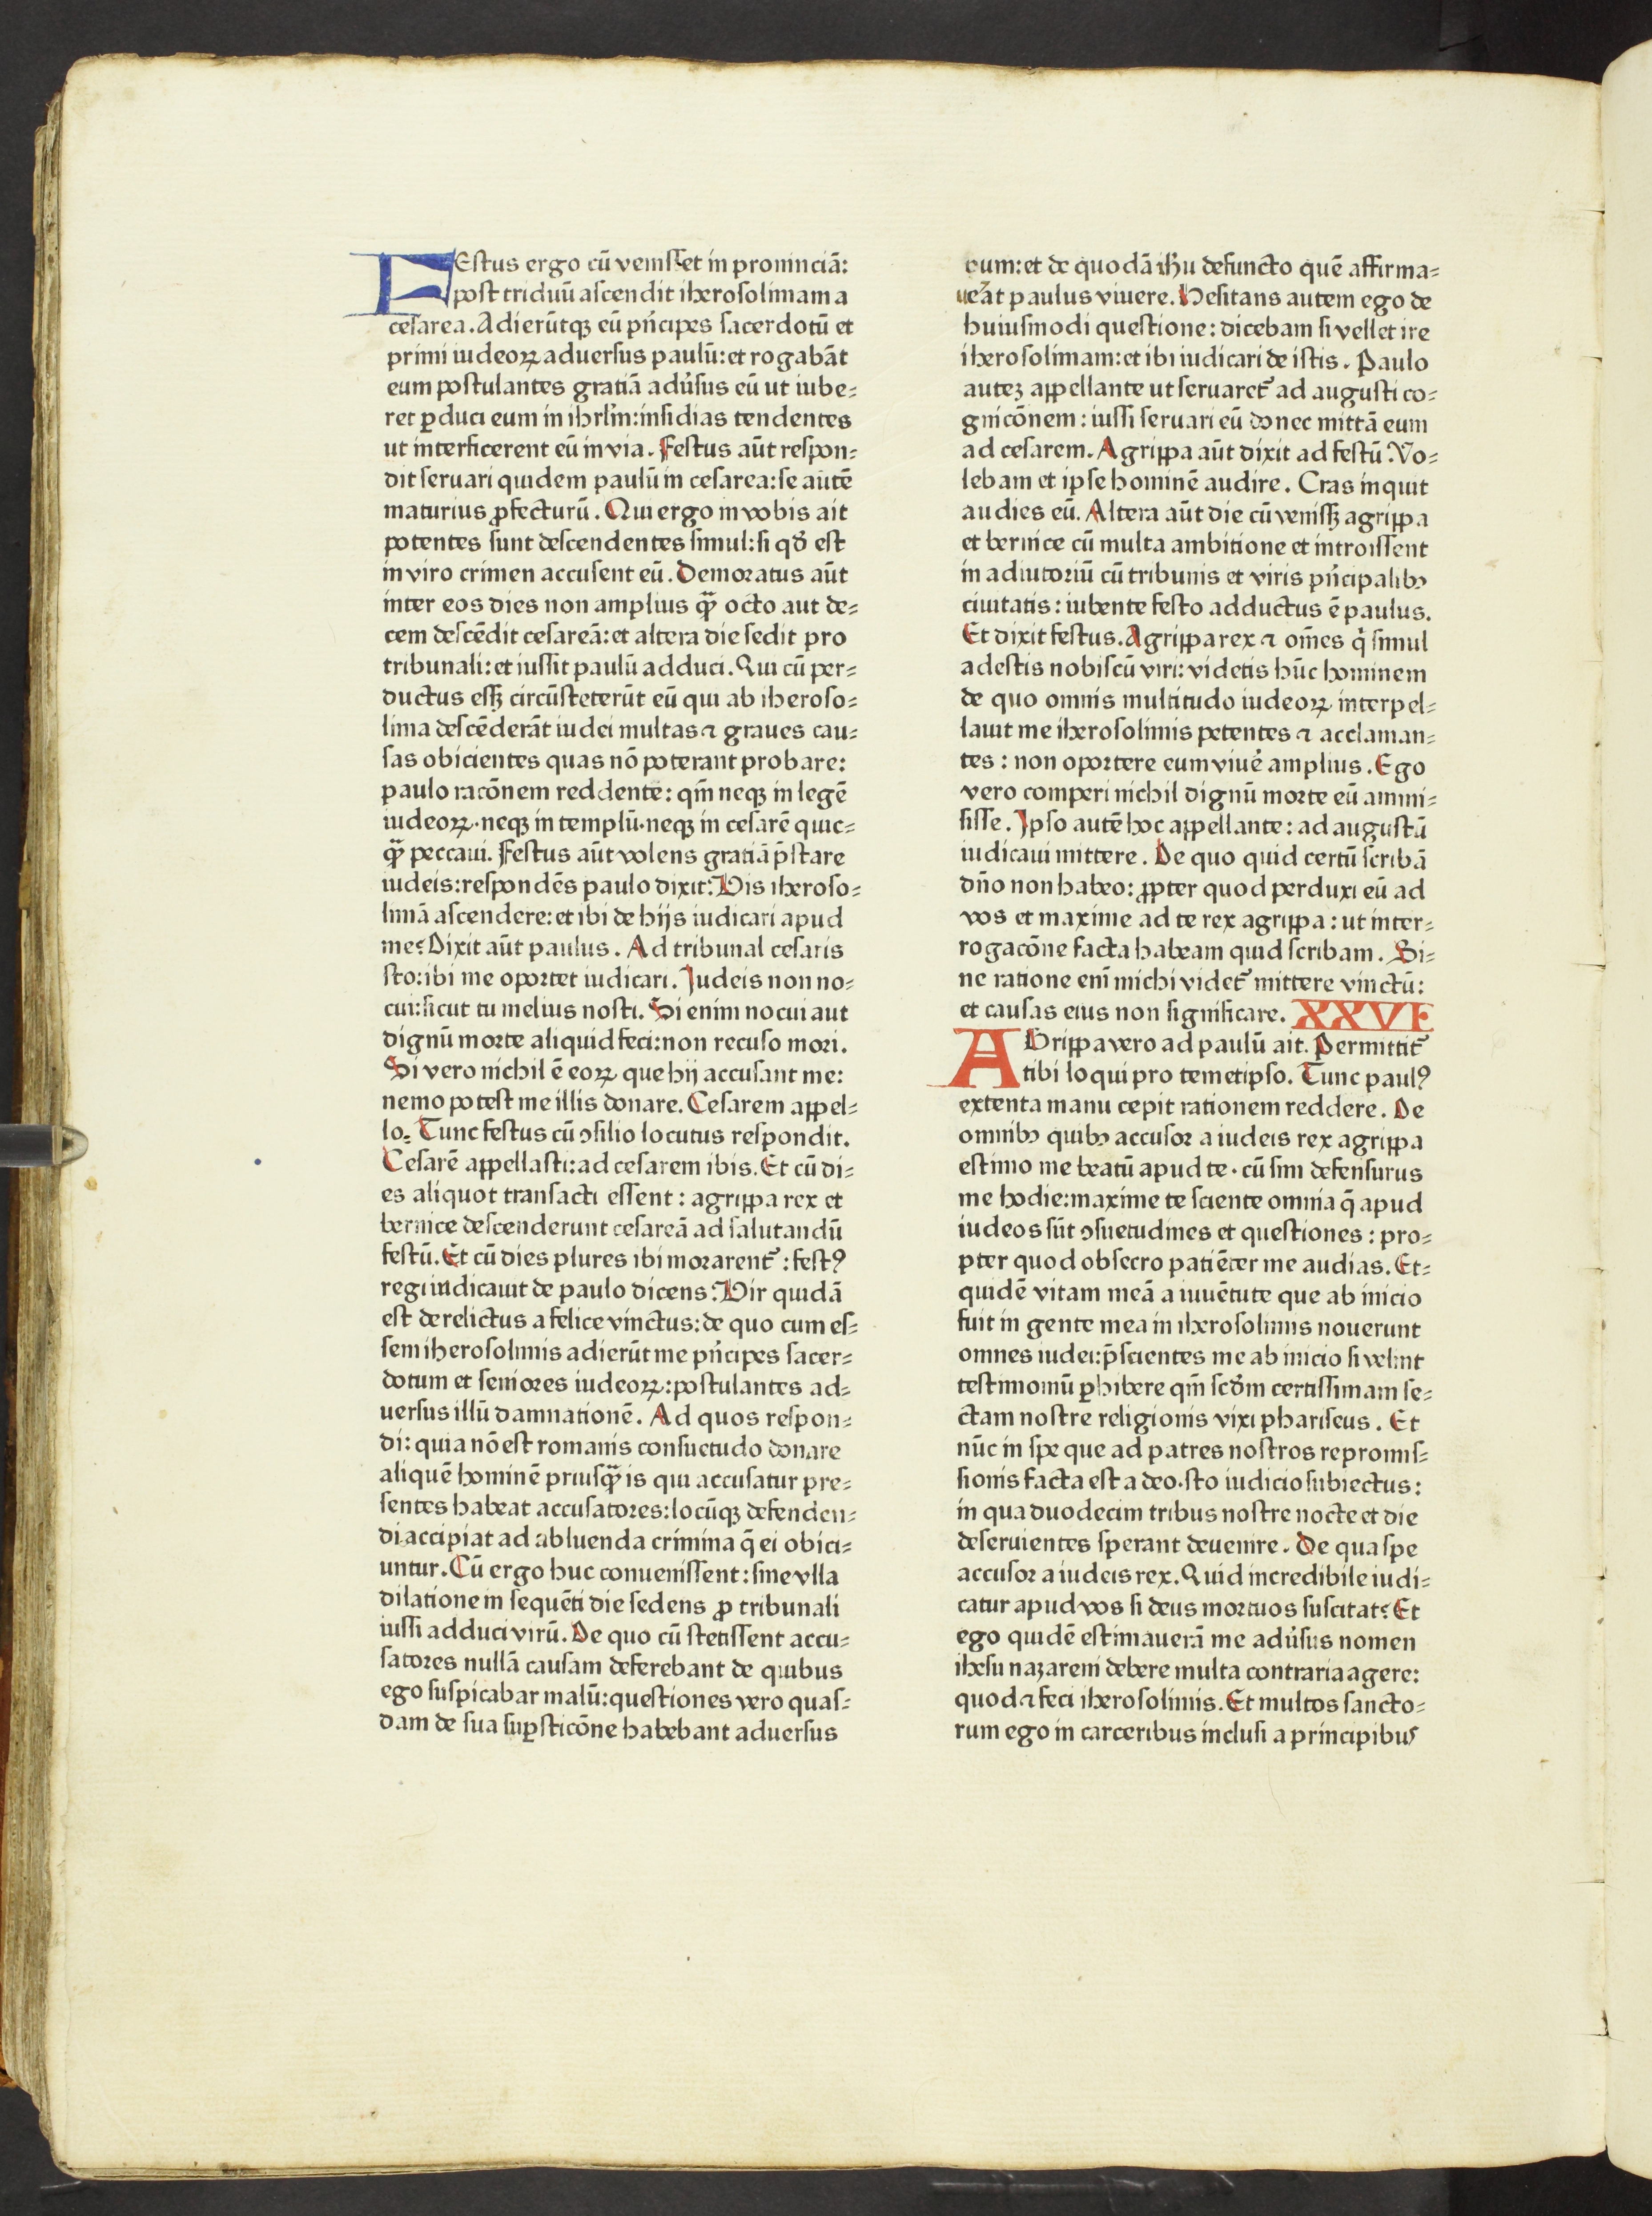 FEstus ergo cū venisset in prouinciā:
post triduū ascendit iherosolimam a
cesarea. Adierūtqꝫ eū pn̄cipes sacerdotū et
primi iudeoꝝ aduersus paulū: et rogabāt
eum postulantes gratiā adu̓sus eū ut iube⸗
ret ꝑduci eum in ihrlm̄: insidias tendentes
ut interficerent eū in via. Festus aūt respon⸗
dit seruari quidem paulū in cesarea: se autē
maturius ꝓfecturū. Qui ergo in vobis ait
potentes sunt descendentes simul: si qd̓ est
in viro crimen accusent eū. Demoratus aūt
inter eos dies non amplius qᷓꝫ octo aut de⸗
cem descēdit cesareā: et altera die sedit pro
tribunali: et iussit paulū adduci. Qui cū per⸗
ductus essꝫ circūsteterūt eū qui ab iheroso⸗
lima descēderāt iudei multas ⁊ graues cau⸗
sas obicientes quas nō poterant probare:
paulo racōnem reddente: qm̄ neqꝫ in legē
iudeoꝝ· neqꝫ in templū· neqꝫ in cesarē quic⸗
qᷓꝫ peccaui. Festus aūt volens gratiā p̄stare
iudeis: respondēs paulo dixit: Vis iheroso⸗
limā ascendere: et ibi de hijs iudicari apud
me? Dixit aūt paulus. Ad tribunal cesaris
sto: ibi me oportet iudicari. Judeis non no⸗
cui: sicut tu melius nosti. Si enim nocui aut
dignū morte aliquid feci: non recuso mori.
Si vero nichil ē eoꝝ que hij accusant me:
nemo potest me illis donare. Cesarem appel⸗
lo. Tunc festus cū ꝯsilio locutus respondit.
Cesarē appellasti: ad cesarem ibis. Et cū di⸗
es aliquot transacti essent: agrippa rex et
bernice descenderunt cesareā ad salutandū
festū. Et cū dies plures ibi morarent᷑: festꝰ
regi indicauit de paulo dicens: Vir quidā
est derelictus a felice vinctus: de quo cum es⸗
sem iherosolimis adierūt me pn̄cipes sacer⸗
dotum et seniores iudeoꝝ: postulantes ad⸗
uersus illū damnationē. Ad quos respon⸗
di: quia nō est romanis consuetudo donare
aliquē hominē priusqᷓꝫ is qui accusatur pre⸗
sentes habeat accusatores: locūqꝫ defenden⸗
di accipiat ad abluenda crimina q̄ ei obici⸗
untur. Cū ergo huc conuenissent: sine vlla
dilatione in sequēti die sedens ꝓ tribunali
iussi adduci virū. De quo cū stetissent accu⸗
satores nullā causam deferebant de quibus
ego suspicabar malū: questiones vero quas⸗
dam de sua suꝑsticōne habebant aduersus
eum: et de quodā ihū defuncto quē affirma⸗
ueāt paulus viuere. Hesitans autem ego de
huiusmodi questione: dicebam si vellet ire
iherosolimam: et ibi iudicari de istis. Paulo
auteꝫ appellante ut seruaret᷑ ad augusti co⸗
gnicōnem: iussi seruari eū donec mittā eum
ad cesarem. Agrippa aūt dixit ad festū. Vo⸗
lebam et ipse hominē audire. Cras inquit
audies eū. Altera aūt die cū venissꝫ agrippa
et bernice cū multa ambitione et introissent
in adiutoriū cū tribunis et viris pn̄cipalibꝫ
ciuitatis: iubente festo adductus ē paulus.
Et dixit festus. Agrippa rex ⁊ om̄es qͥ simul
adestis nobiscū viri: videtis hūc hominem
de quo omnis multitudo iudeoꝝ interpel⸗
lauit me iherosolimis petentes ⁊ acclaman⸗
tes: non oportere eum viue᷑ amplius. Ego
vero comperi nichil dignū morte eū ammi⸗
sisse. Ipso autē hoc appellante: ad augustū
iudicaui mittere. De quo quid certū scribā
dn̄o non habeo: ꝓpter quod perduxi eū ad
vos et maxime ad te rex agrippa: ut inter⸗
rogacōne facta habeam quid scribam. Si⸗
ne ratione enī michi videt᷑ mittere vinctū:
et causas eius non significare. XXVI
AGrippa vero ad paulū ait. Permittit᷑
tibi loqui pro temetipso. Tunc paulꝰ
extenta manu cepit rationem reddere. De
omnibꝫ quibꝫ accusor a iudeis rex agrippa
estimo me beatū apud te· cū sim defensurus
me hodie: maxime te sciente omnia q̄ apud
iudeos sūt ꝯsuetudines et questiones: pro⸗
pter quod obsecro patiēter me audias. Et⸗
quidē vitam meā a iuuētute que ab inicio
fuit in gente mea in iherosolimis nouerunt
omnes iudei: p̄scientes me ab inicio si velint
testimoniū ꝑhibere qm̄ scd̓m certissimam se⸗
ctam nostre religionis vixi phariseus. Et
nūc in spe que ad patres nostros repromis⸗
sionis facta est a deo· sto iudicio subiectus:
in qua duodecim tribus nostre nocte et die
deseruientes sperant deuenire. De qua spe
accusor a iudeis rex. Quid incredibile iudi⸗
catur apud vos si deus mortuos suscitat? Et
ego quidē estimauerā me adu̓sus nomen
ihesu nazareni debere multa contraria agere:
quod ⁊ feci iherosolimis. Et multos sancto⸗
rum ego in carceribus inclusi a principibus